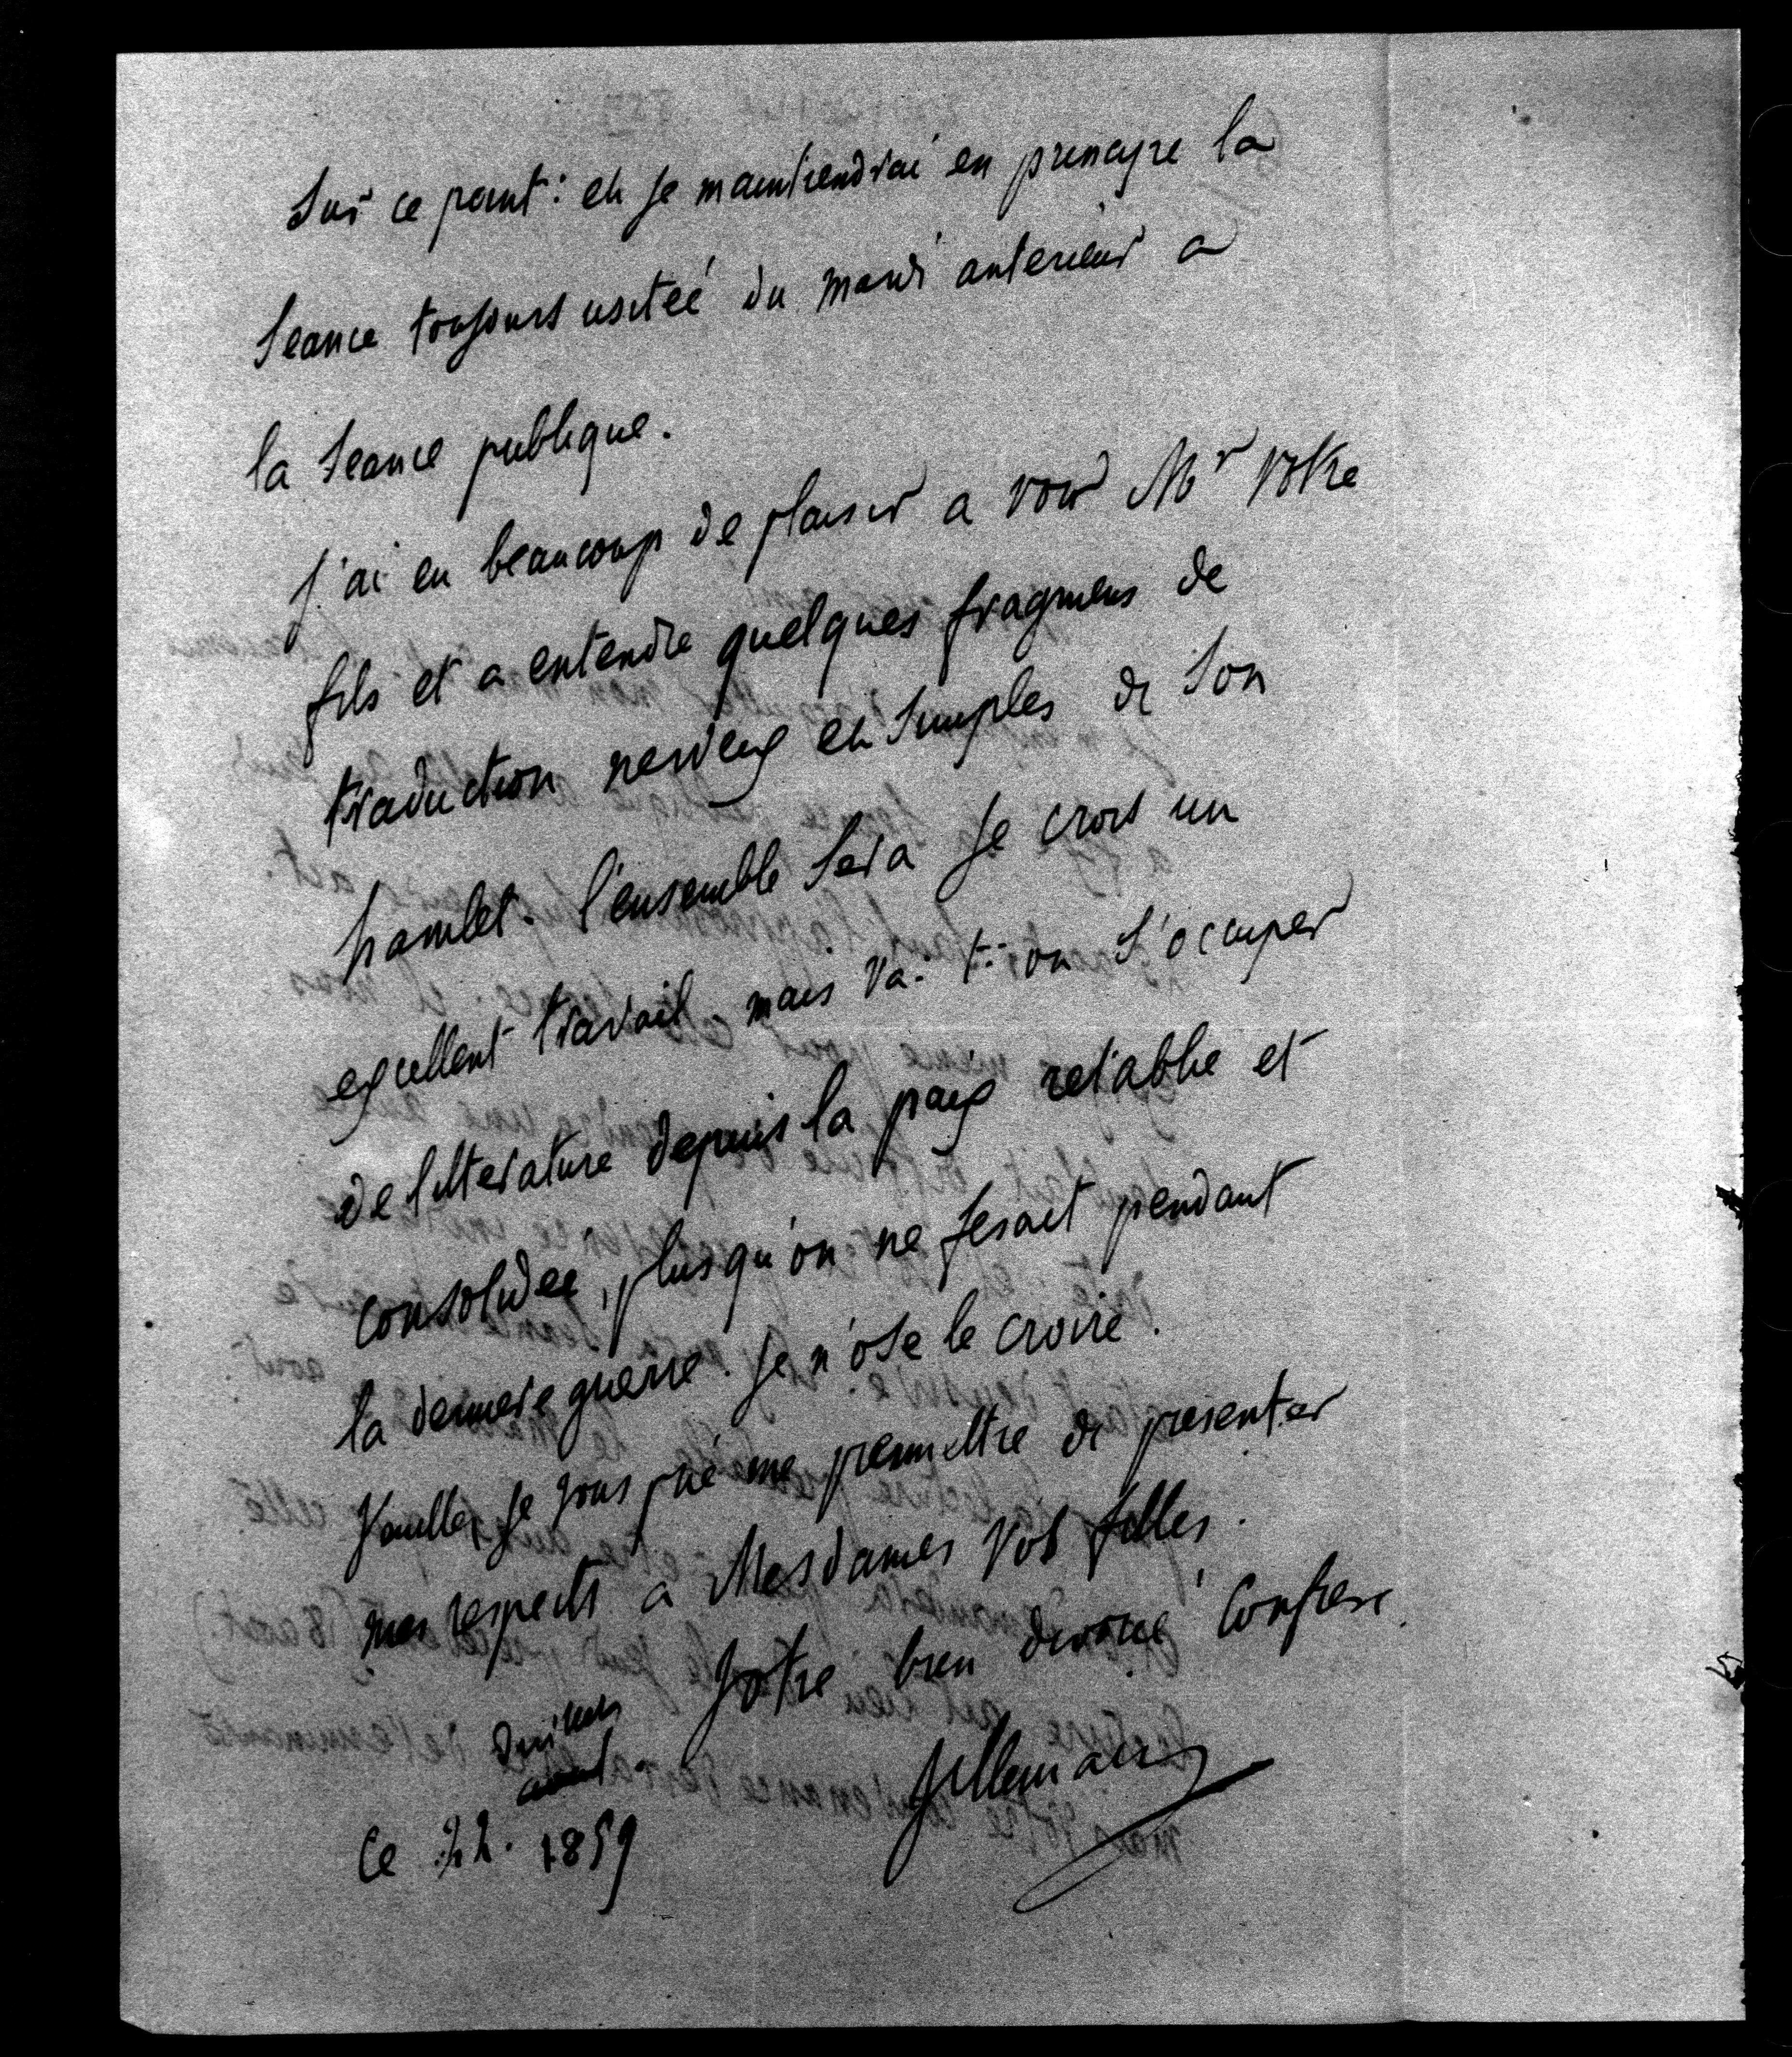 sur ce point: et je maintiendrai en principe la
seance toujours usiteé du mardi anterieur a
la seance publique.
j'ai eu beaucoup de plaisir a voir Mr votre
fils et a entendre quelques fragmens de
traduction nerveux et simples de son
hamlet. l'ensemble sera je crois un
excellent travail. mais va-t-on s'occuper
de litterature depuis la paix retablie et
consolideé, plus qu'on ne fesait pendant
la derniere guerre. je n'ose le croire.
Veuillez je vous prie me permettre de presenter
mes respects a Mesdames vos filles.
Votre bien devoué confrere.
juillet
Villemain
ce 22. 1859